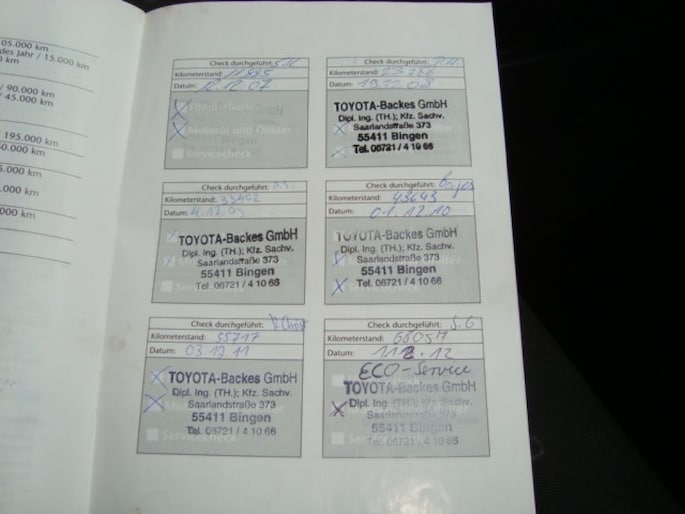 05.000 km
des Jahr / 15.000
km
/ 90.000 km
/ 45.000 km
195.000 km
60.000 km
5.000 km
.000 km
000 km
Check durchgeführt:
Kilometerstand:
Datum: 12.12.07
Motoröl und Ölfilter
Servicecheck
Check durchgeführt:
Kilometerstand: 22786
Datum: 19.12.08
TOYOTA-Backes GmbH
Dipl. Ing. (TH.); Kfz. Sachv.
Saarlandstraße 373
55411 Bingen
Tel. 06721 / 4 10 66
Check durchgeführt:
Kilometerstand: 33402
Datum:
TOYOTA-Backes GmbH
Dipl. Ing. (TH.); Kfz. Sachv.
Saarlandstraße 373
55411 Bingen
Tel. 06721 / 4 10 66
Check durchgeführt:
Kilometerstand: 43643
Datum: 01.12.10
TOYOTA-Backes GmbH
Dipl. Ing. (TH.); Kfz. Sachv.
Saarlandstraße 373
55411 Bingen
Tel. 06721 / 4 10 66
Servicecheck
Check durchgeführt:
Kilometerstand: 55717
Datum: 03.12.11
TOYOTA-Backes GmbH
Dipl. Ing. (TH.); Kfz. Sachv.
Saarlandstraße 373
55411 Bingen
Tel. 06721 / 4 10 66
Servicecheck
Check durchgeführt: S.G
Kilometerstand:
Datum:
ECO-Service
TOYOTA-Backes GmbH
Dipl. Ing. (TH.); Kfz. Sachv.
Saarlandstraße 373
55411 Bingen
Tel. 06721 / 4 10 66
Servicecheck